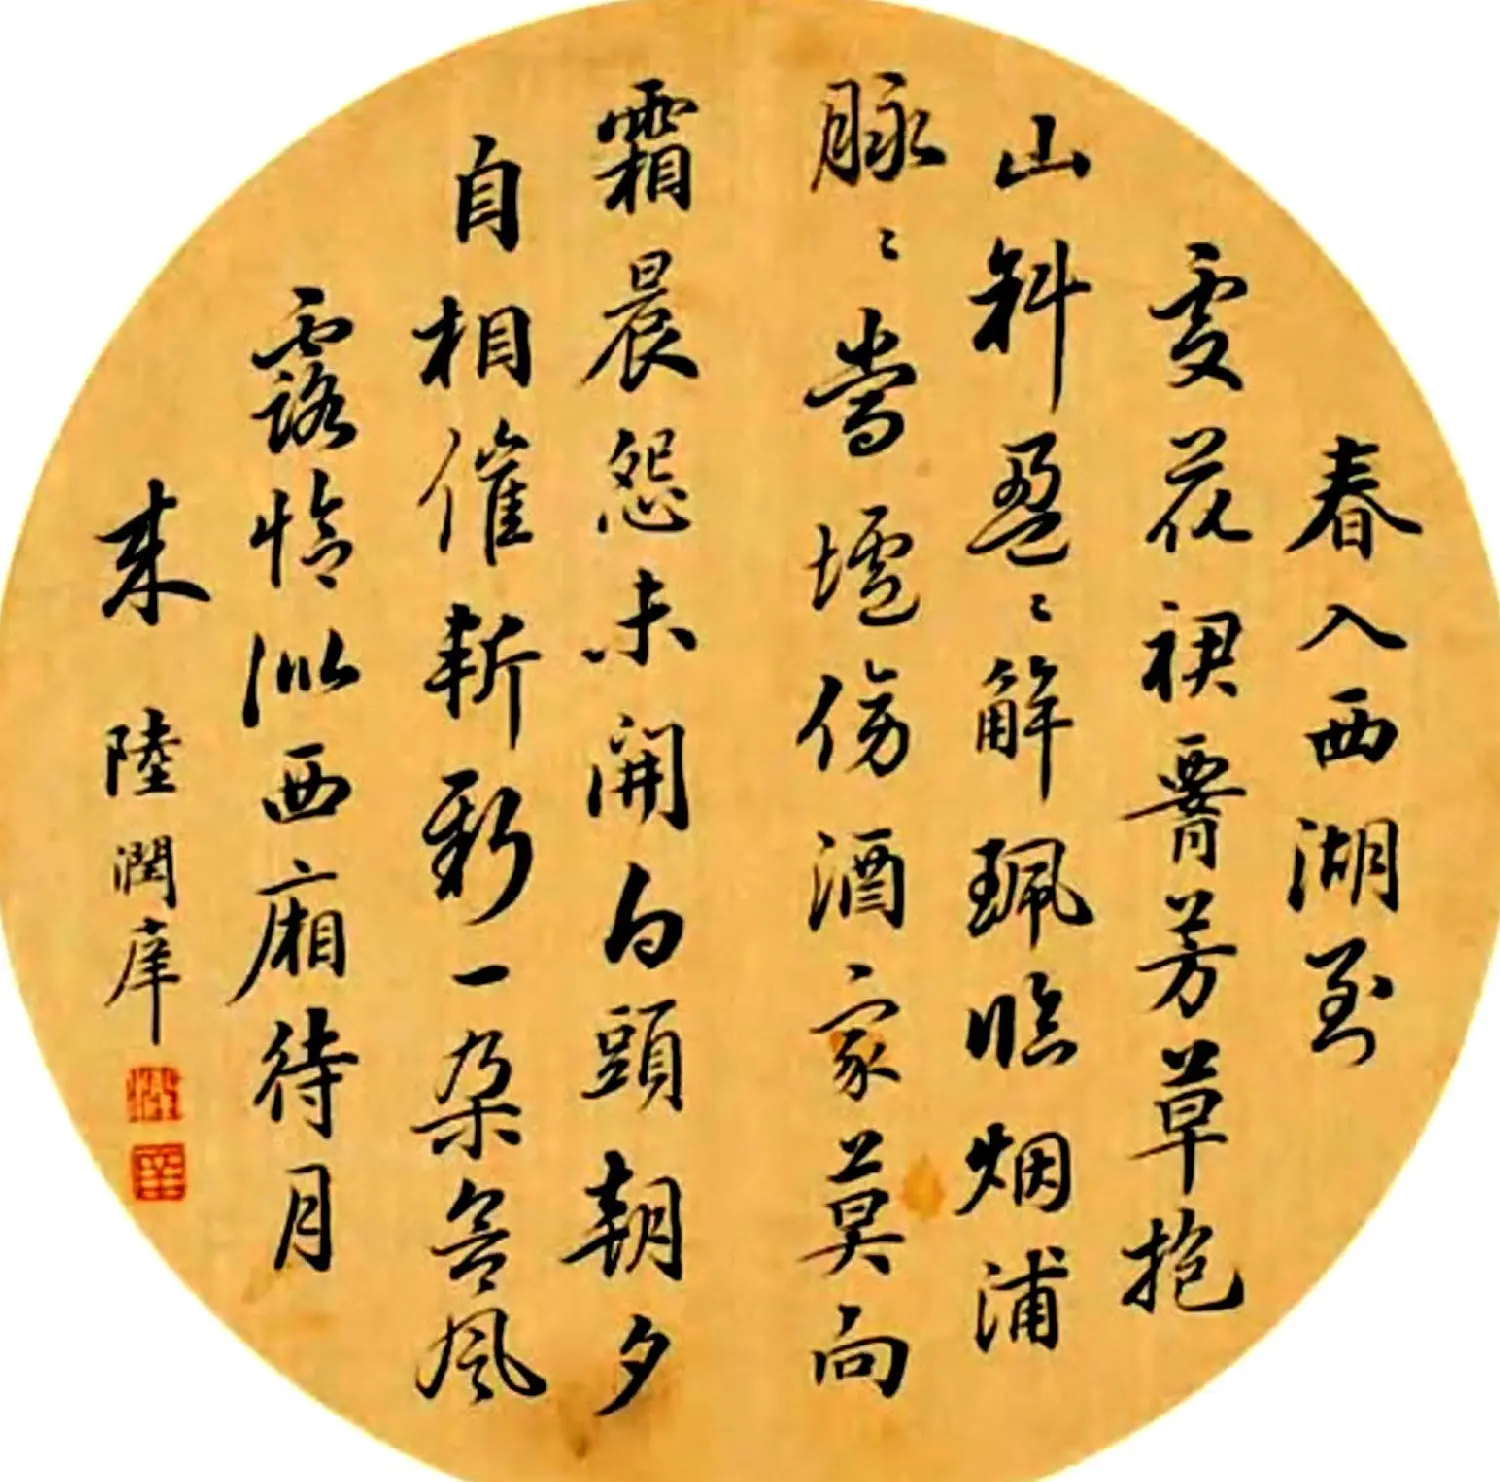 春入西湖到
處花裙腰芳草抱
山斜盈〻解珮臨烟浦
脉〻當壚傍酒家莫向
霜晨怨未開白頭朝夕
自相催斬新一朵含風
露恰似西廂待月
來 陸潤庠